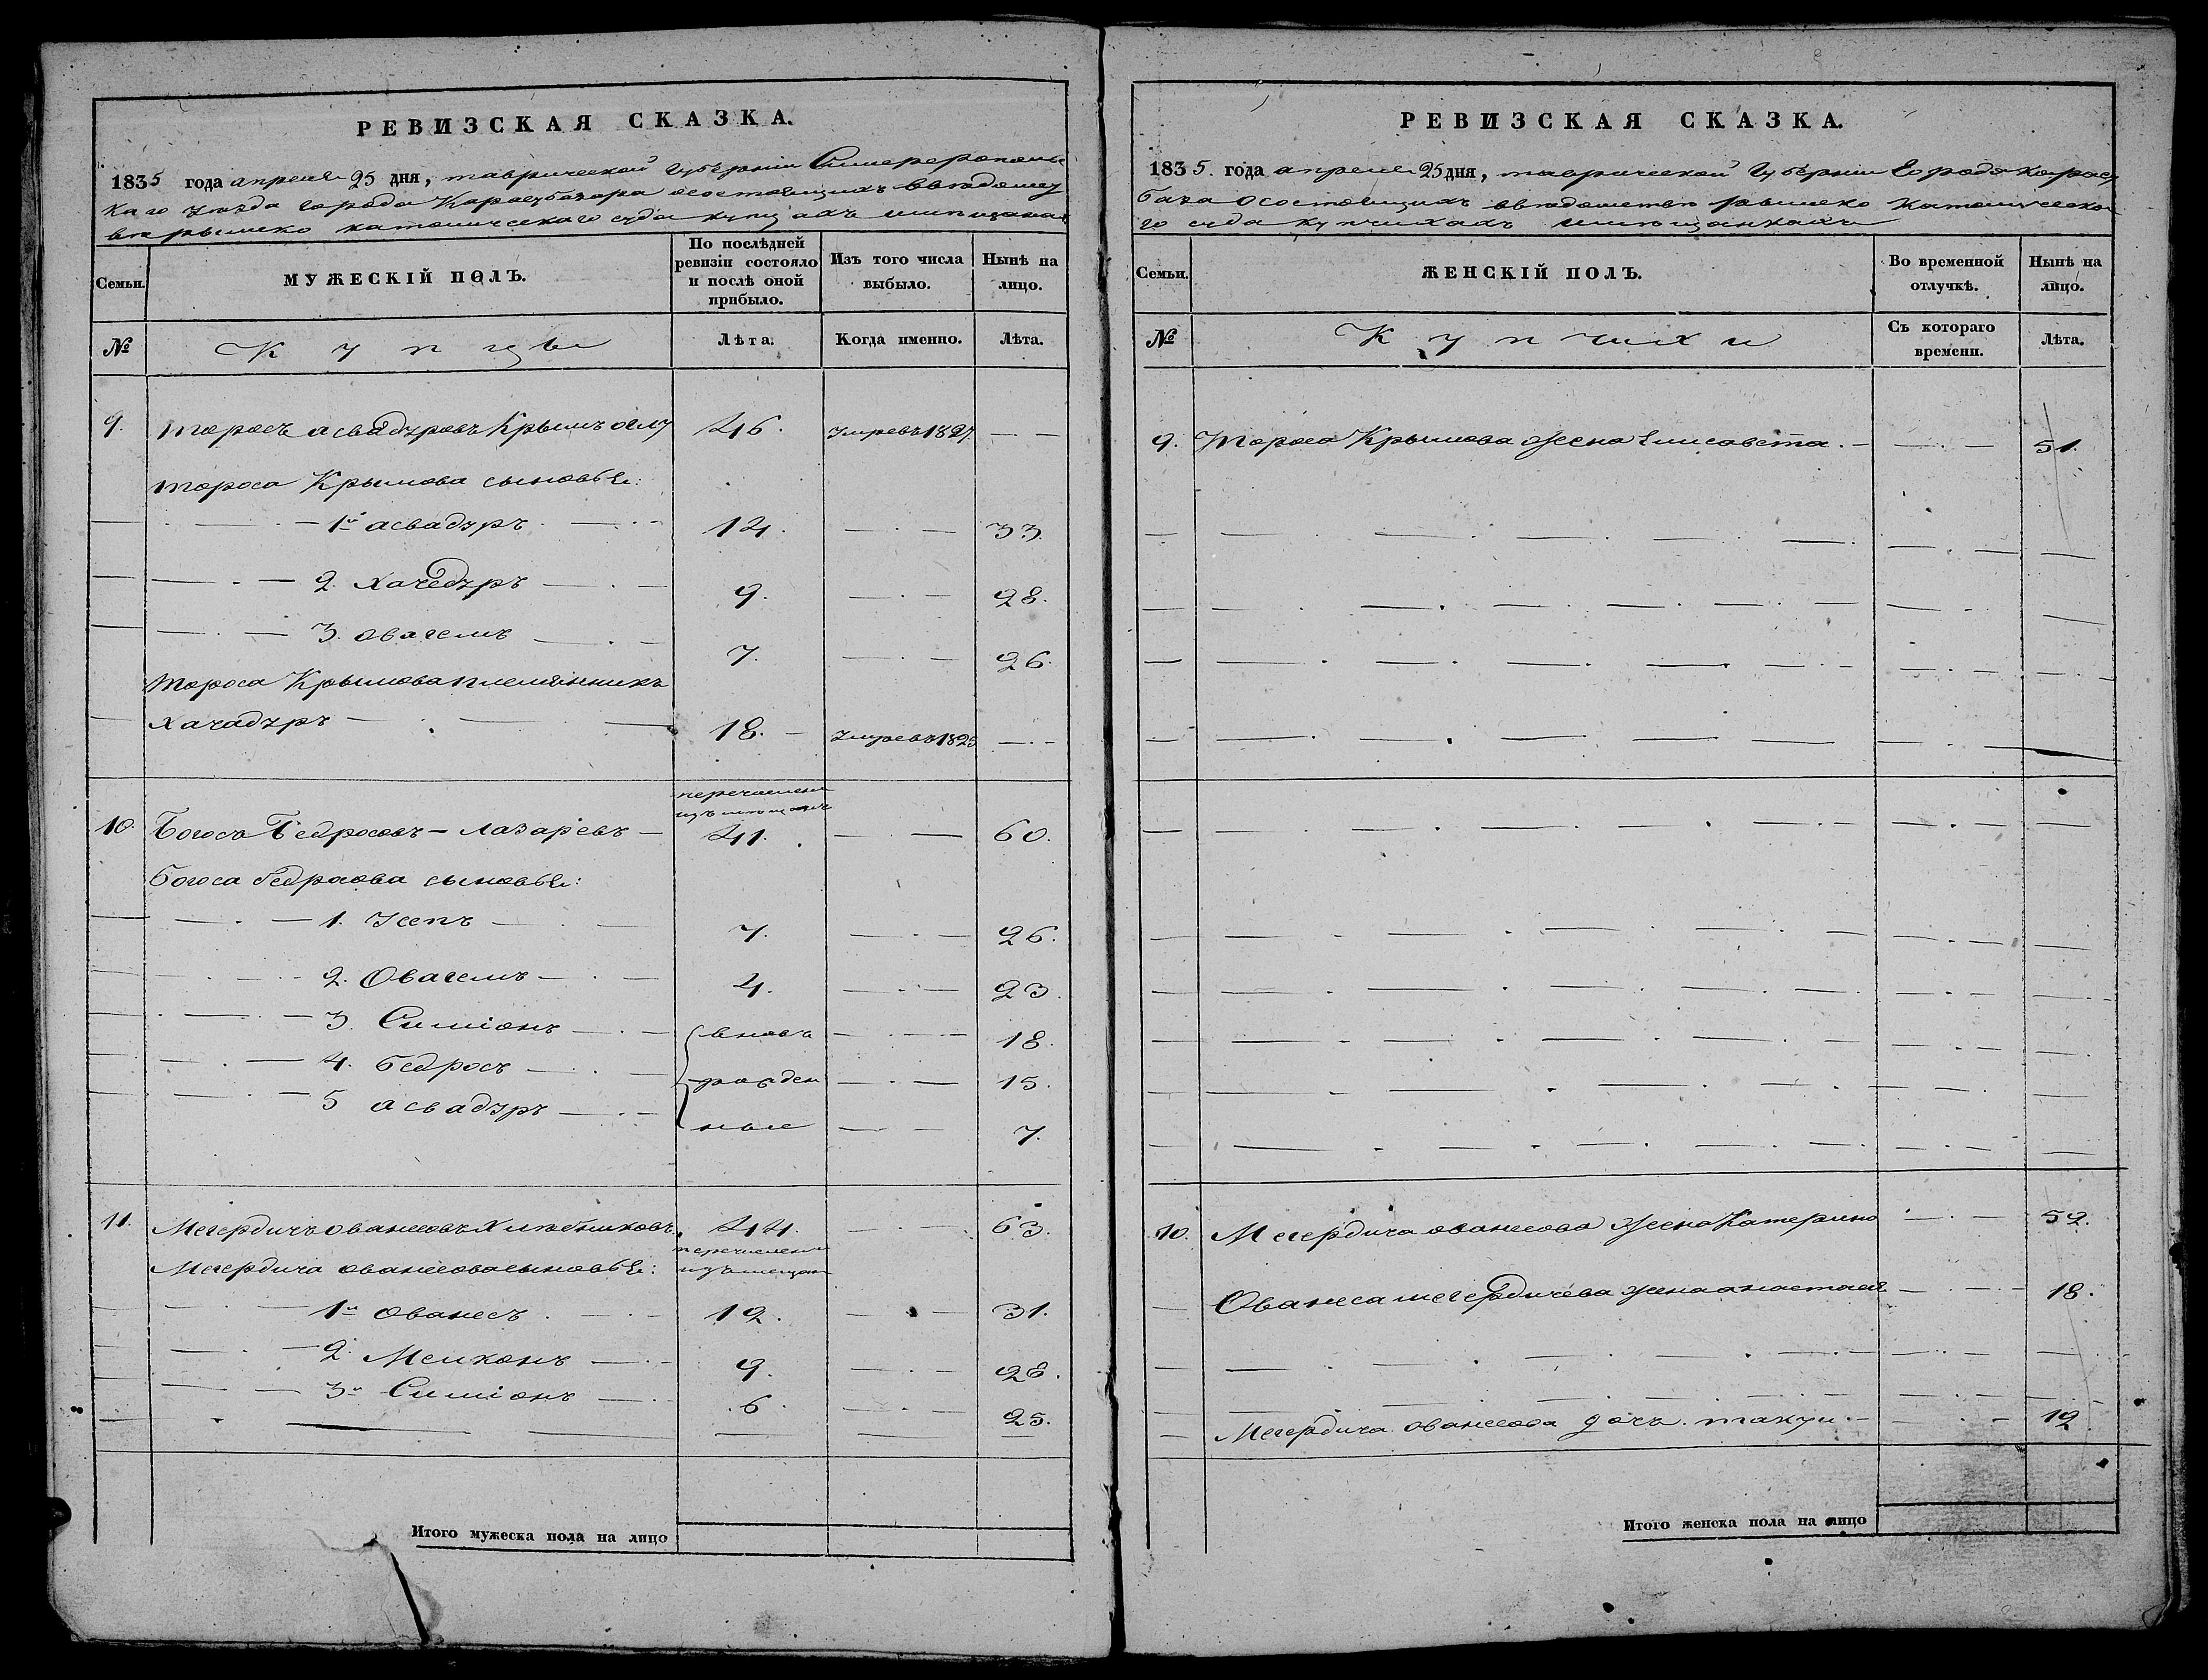 РЕВИЗСКАЯ СКАЗКА.
1835 года апреля 25 дня, таврической губернiи Симферополь
каго уѣзда города Карасубазара осостоящихъ ввѣдомст
вѣ римско католическаго суда купцахъ имѣщанах
Семьи.
МУЖЕСКIЙ ПОЛЪ.
По послѣдней ревизiи состояло и послѣ оной прибыло.
Изъ того числа выбыло.
Нынѣ на лицо.
№
Купцы
Лѣта.
Когда именно.
Лѣта.
9. торосъ асвадуровъ Крымъ оглу 46. умревъ 1827. — —
тороса Крымова сыновья:
1й асвадуръ 14. — 33.
2. Хачедуръ 9. — 28.
3. овагемъ 7. — 26.
тороса Крымова племянникъ
хачадуръ 18. — умревъ 1825 — —
перечислены
изъ мѣщанъ
10. Богосъ Бедросовъ — Лазаревъ — 41. — 60.
богоса бедросва сыновья:
1. Усепъ 7. — 26.
2. Овагемъ 4. — 23.
3. Симiонъ вновь — 18.
4. бедросъ рожден — 15.
5 асвадуръ ные — 7.
11. Мегердичъ ованесовъ Хлѣбниковъ. 44. — 63.
перечислены
Мегердича ованесова сыновья: изъ мещан
1й ованесъ 12. — 31.
2. Мелконъ 9. — 28.
3й Симiонъ 6. — 25.
Итого мужеска пола на лицо
РЕВИЗСКАЯ СКАЗКА.
1835. года апреля 25 дня, таврической губернiи Города Карасу
база осостоящихъ ввѣдомствѣ римско католическа
го суда купчихахъ имѣщанкахъ
Семьи.
ЖЕНСКIЙ ПОЛЪ.
Во временной отлучкѣ.
Нынѣ на лицо.
№
Купчихи
Съ котораго времени.
Лѣта.
9. Тороса Крымова жена Елисавета. — 51.
10. Мегердича ованесова жена Катерина — 52.
Ованеса мегердичева жена анастасiя — 18.
Мегердича ованесова дочь такуи. — 12
Итого женска пола на лицо